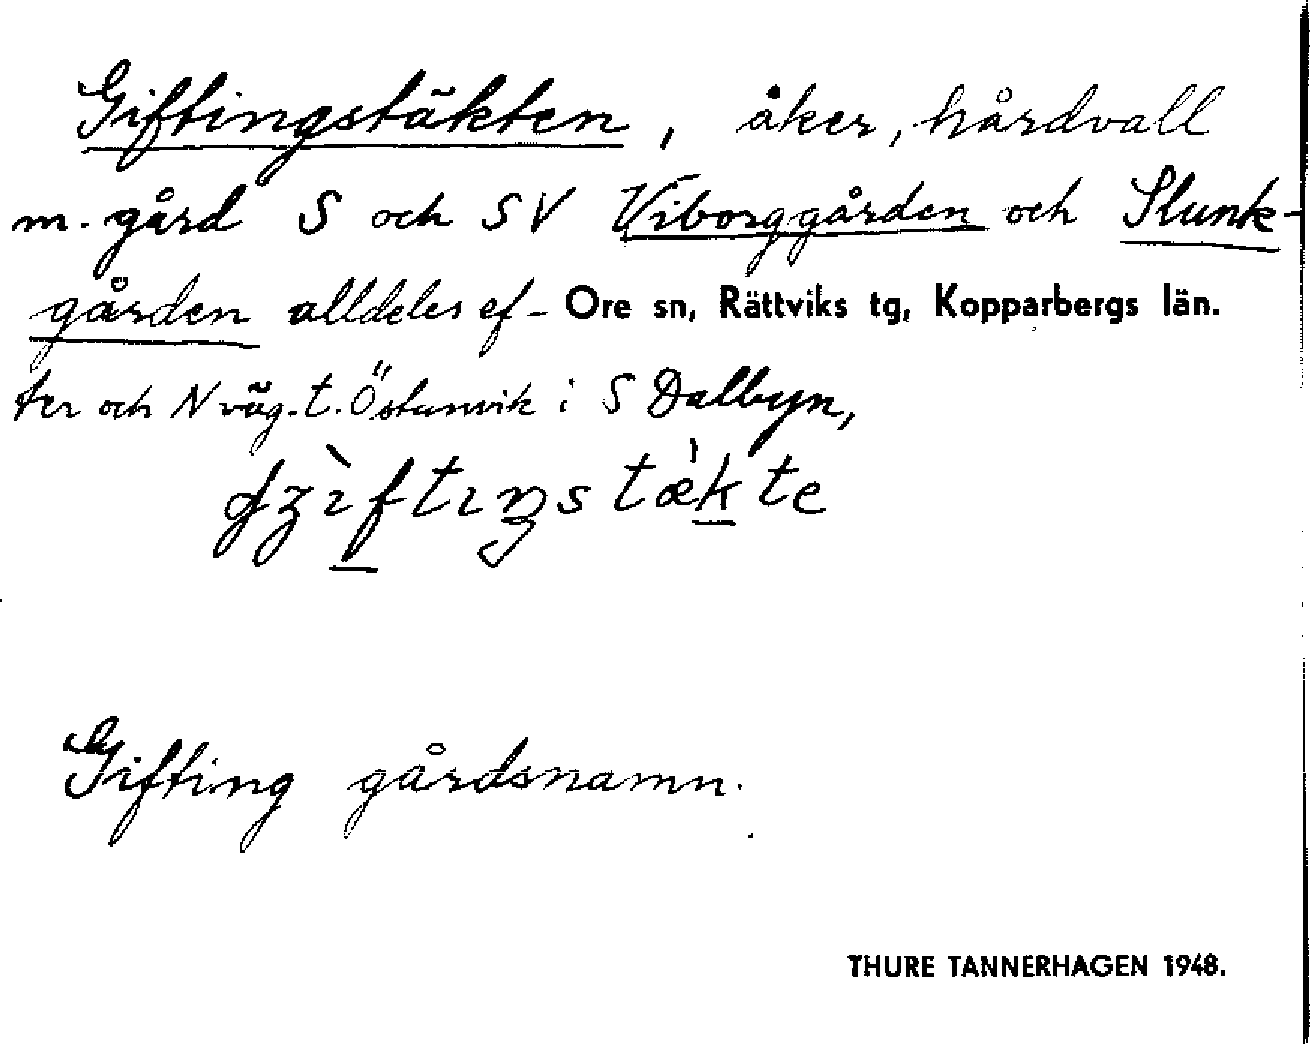 Giftingstäkten, åker, hårdvall
m. gård S och SV Viborggården och Slunk-
gården alldeles ef- Ore sn, Rättviks tg, Kopparbergs län.
ter och N väg. t. Östanvik i S Dalbyn,
Gifting gårdsnamn.
THURE TANNERHAGEN 1948.